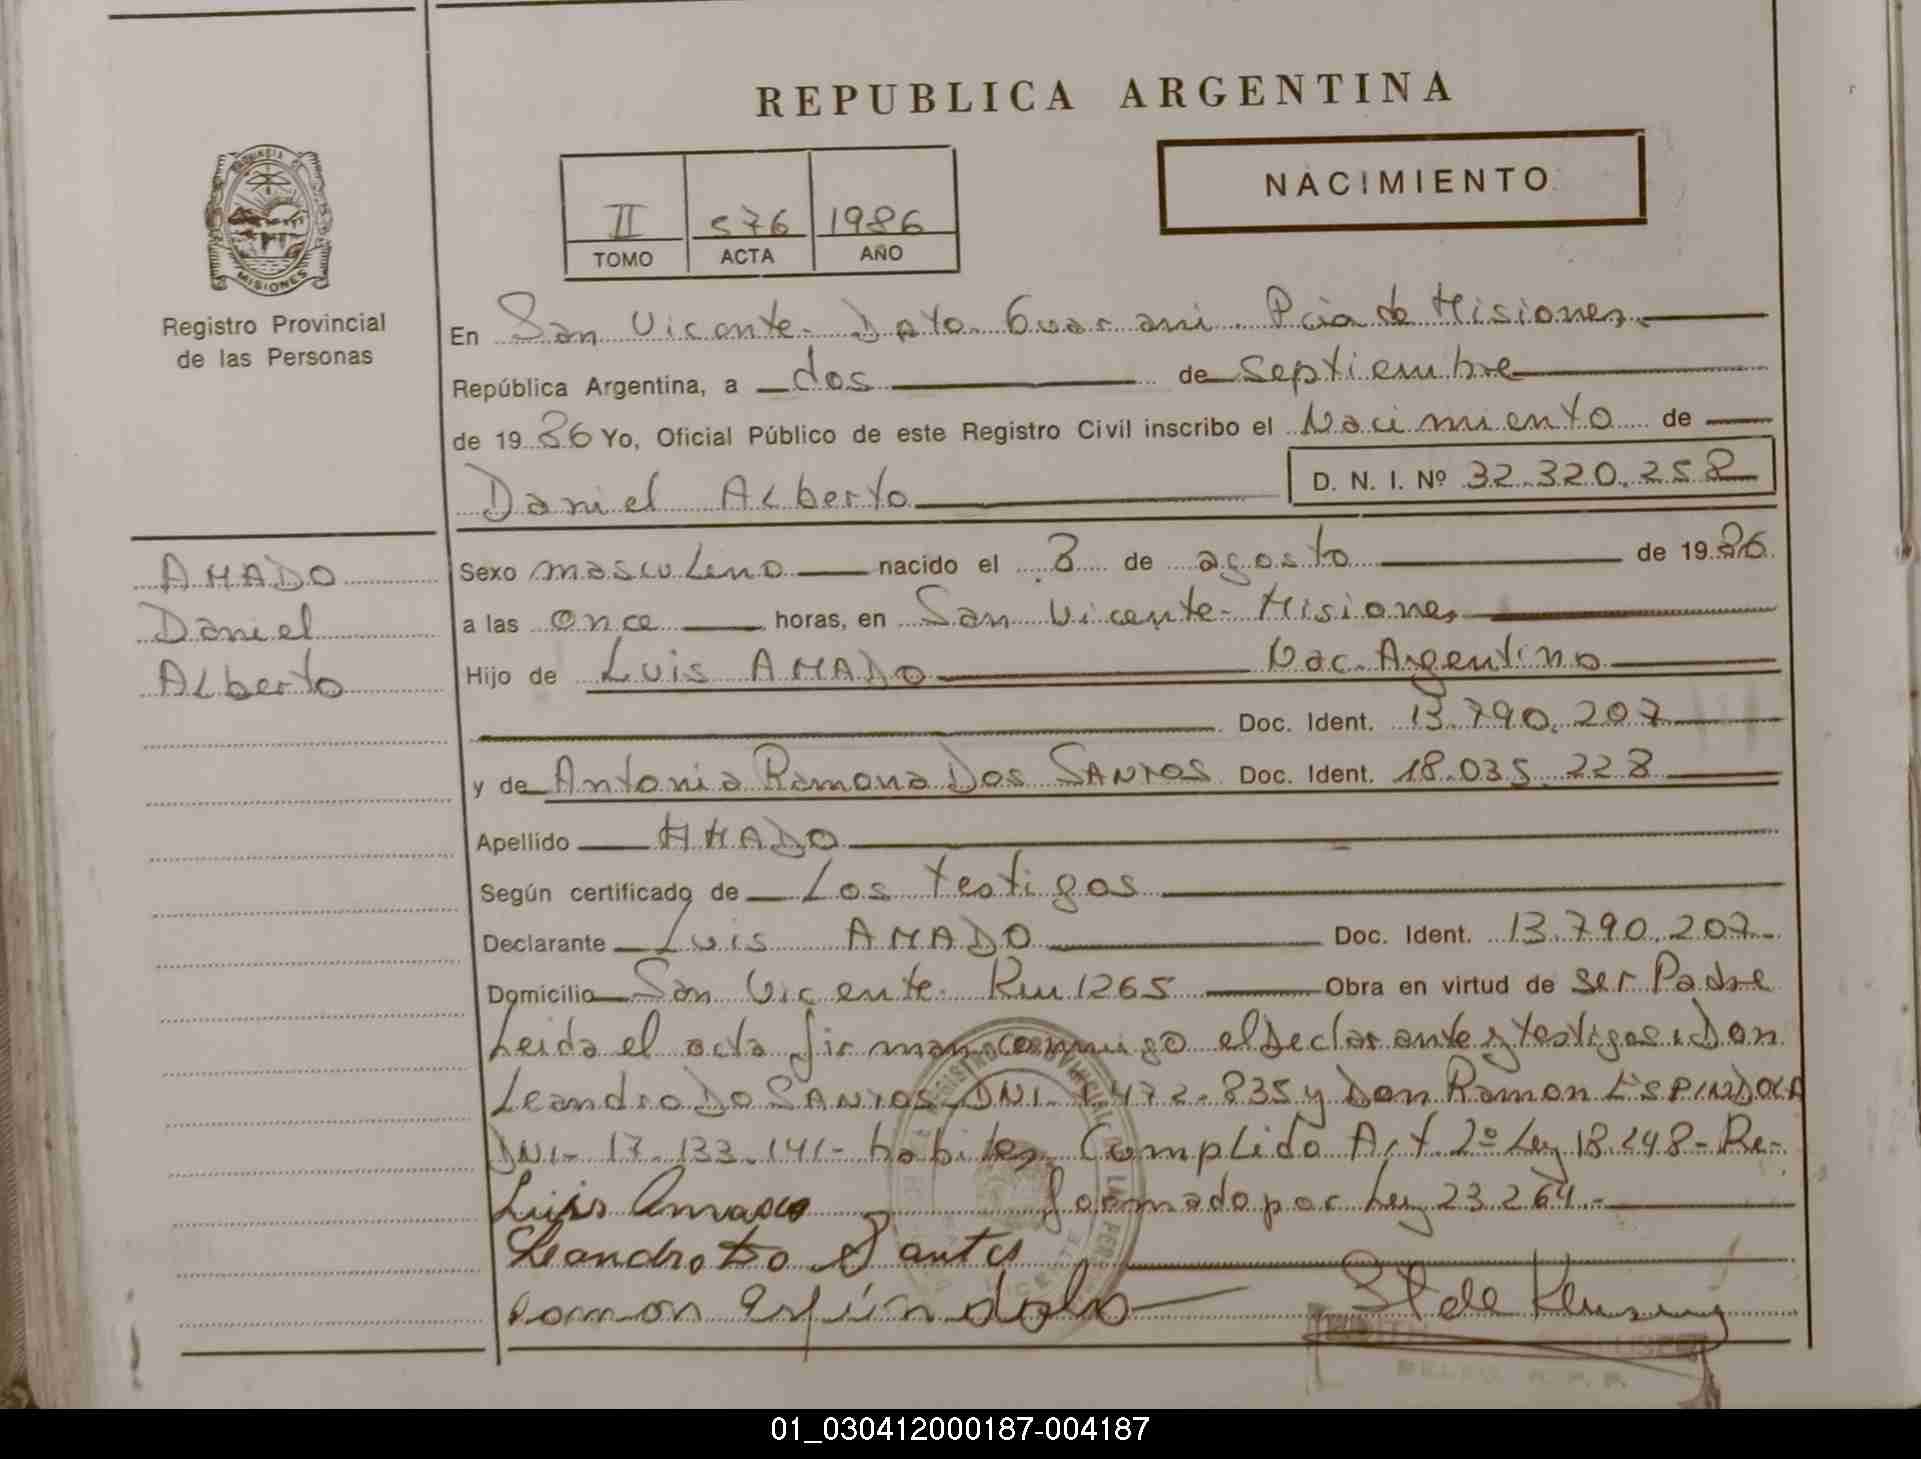 REPUBLICA ARGENTINA
NACIMIENTO
II 576 1986
TOMO ACTA AÑO
PROVINCIA DE
MISIONES
Registro Provincial
de las Personas
En San Vicente - Dpto. Guarani. Pcia de Misiones.
República Argentina, a dos de septiembre
de 1986 Yo, Oficial Público de este Registro Civil inscribo el Nacimiento de
Daniel Alberto D. N. I. Nº 32.320.258
AMADO
Daniel
Alberto
Sexo masculino nacido el 8 de agosto de 1986.
a las once horas, en San Vicente - Misiones
Hijo de Luis AMADO Nac. Argentino
Doc. Ident. 13.790.207
y de Antonia Ramona Dos SANTOS Doc. Ident. 18.035.228
Apellido AMADO
Según certificado de Los testigos
Declarante Luis AMADO Doc. Ident. 13.790.207-
Domicilio San Vicente - Km 1265 Obra en virtud de ser Padre
Leida el acta firman conmigo el Declarante y testigos: Don
Leandro Do SANTOS, DNI. 472-835 y Don Ramon ESPINDOLA
DNI- 17.133.141- habiles. Complido Art. 2º Ley 18.248- Re-
Luis Amado formado por Ley 23.264.-
Leandro Do Santos
Ramon Espindola
01_030412000187-004187